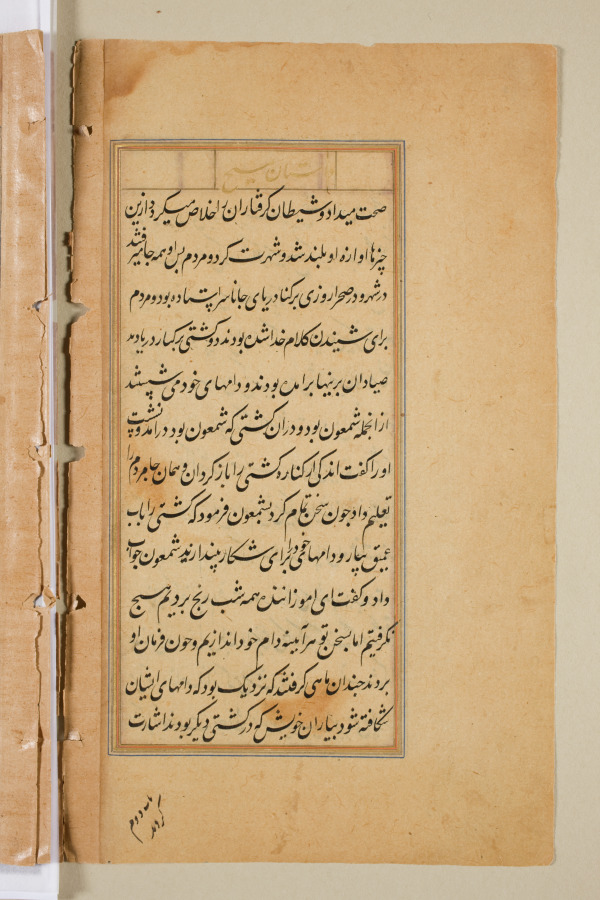 داستان مسیح
صحت میداد و شیطان گرفتاران را خلاص میکرد و ازین
چیزها اوازه او بلند شد و شهرت کرد و مردم بس او همه جا میرفتند
در شهر و در صحرا روزی بر کنار دریای جاناسر ایستاده بود و مردم
برای شنیدن کلام خدا شده بودند دو کشتی بر کنار دریا دید
صیادان بر ینها برامده بودند و دامهای خود می شستند
از انجمله شمعون بود و دران کشتی که شمعون بود درامد و نشست
او را گفت اندکی از کناره کشتی را باز گردان و همان جا مردم را
تعلیم داد چون سخن تمام کرد بشمعون فرمود که کشتی را باب
عمیق بیار و دامهای خود را برای شکار بیندازید شمعون جواب
داد و گفت ای اموزاننده همه شب رنج بردیم هیچ
نگرفتیم اما بسخن تو هر آینه دام خود اندازیم و چون فرمان او
بردند چندان ماهی گرفتند که نزدیک بود که دامهای ایشان
شگافته شود بیاران خویش که در کشتی دیگر بودند اشارت
کردند